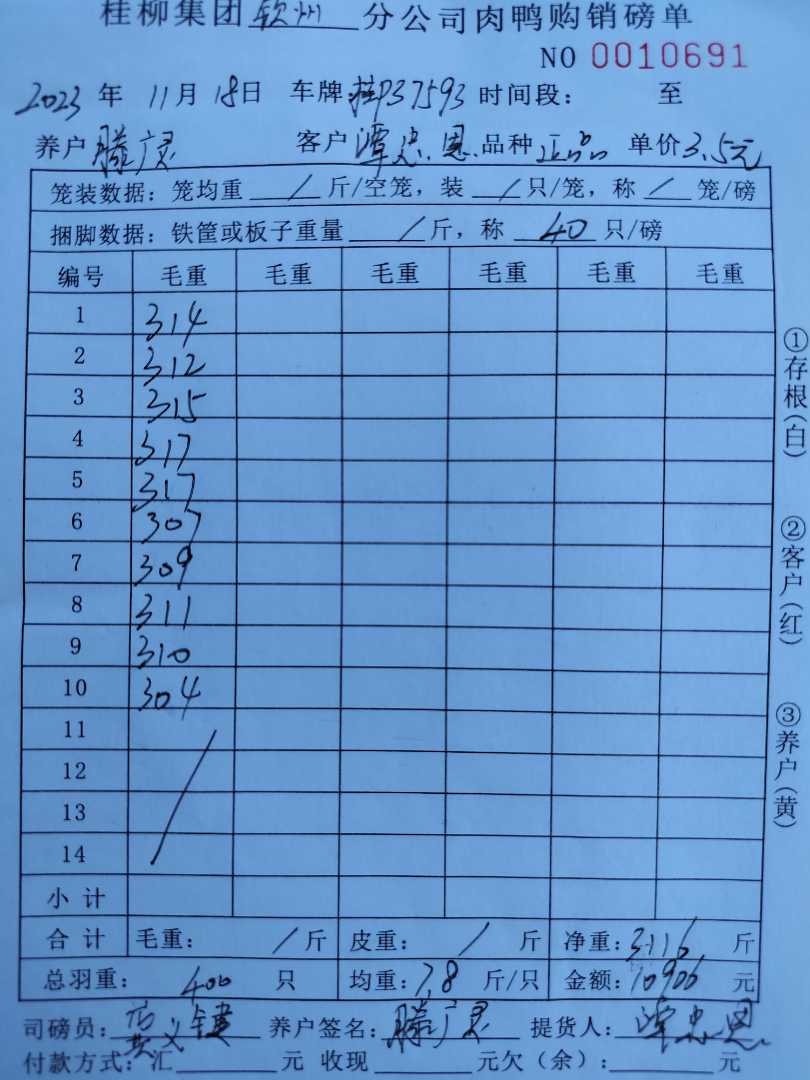 桂柳集团钦州分公司肉鸭购销磅单
NO 0010691
2023年11月18日 车牌:桂P37593 时间段: 至
养户滕广灵 客户 潭忠恩 品种 正品 单价3.5元
笼装数据: 笼均重 / 斤/空笼, 装 / 只/笼, 称 / 笼/磅
捆脚数据: 铁筐或板子重量 / 斤, 称 40 只/磅
编号 毛重 毛重 毛重 毛重 毛重 毛重
1 314
2 312
3 315
4 317
5 317
6 307
7 309
8 311
9 310
10 304
11
12
13
14
小计
合计 毛重: / 斤 皮重: / 斤 净重: 3116 斤
总羽重: 400 只 均重: 7.8 斤/只 金额: 10906 元
司磅员: 养户签名: 滕广灵 提货人: 潭忠恩
付款方式: 汇 元 收现 元欠(余): 元
①存根(白)
②客户(红)
③养户(黄)